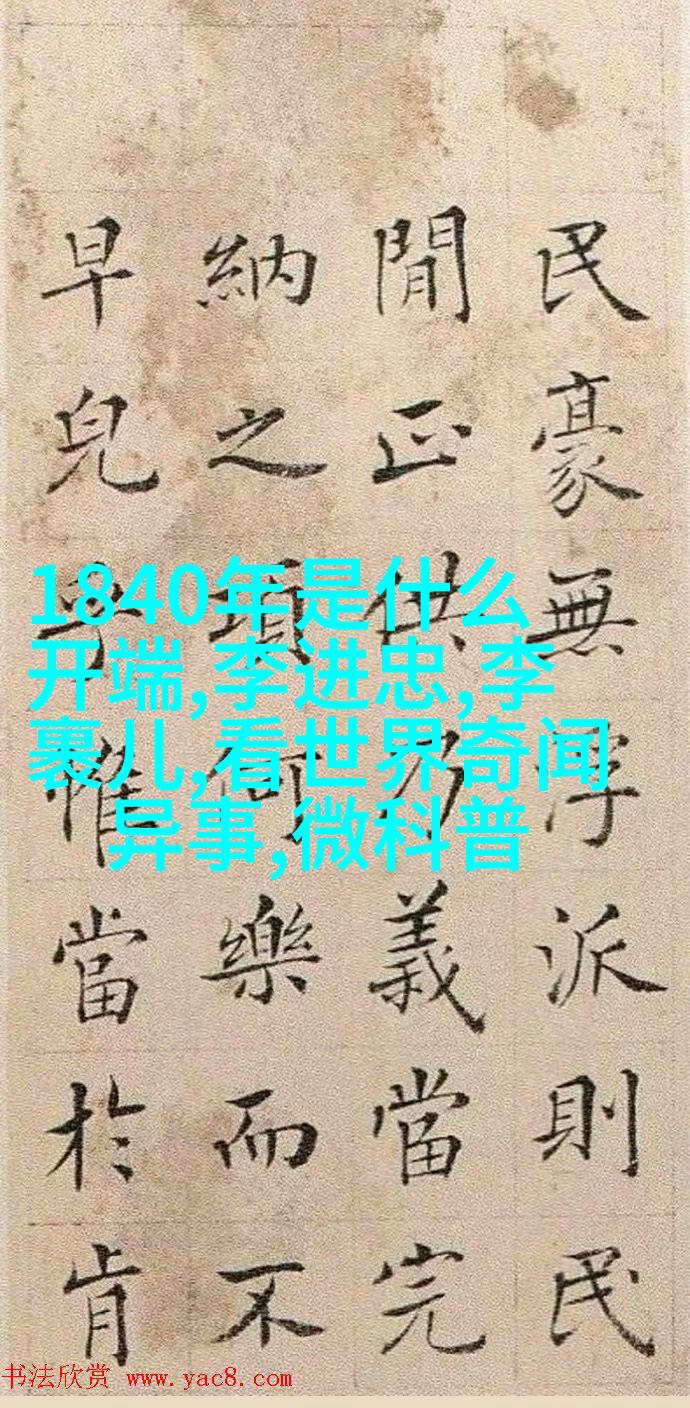 民豪無浮派則民
閒正供乃義當完
納之項何樂而不
早兒惟當於肯
1840年是什么
开端,李进忠,李
裹儿,看世界奇闻
异事,微科普
书法欣赏 www.yac8.com